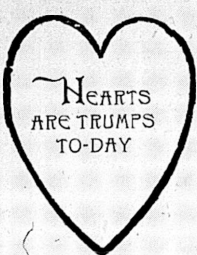 HEARTS
ARE TRUMPS
TO-DAY